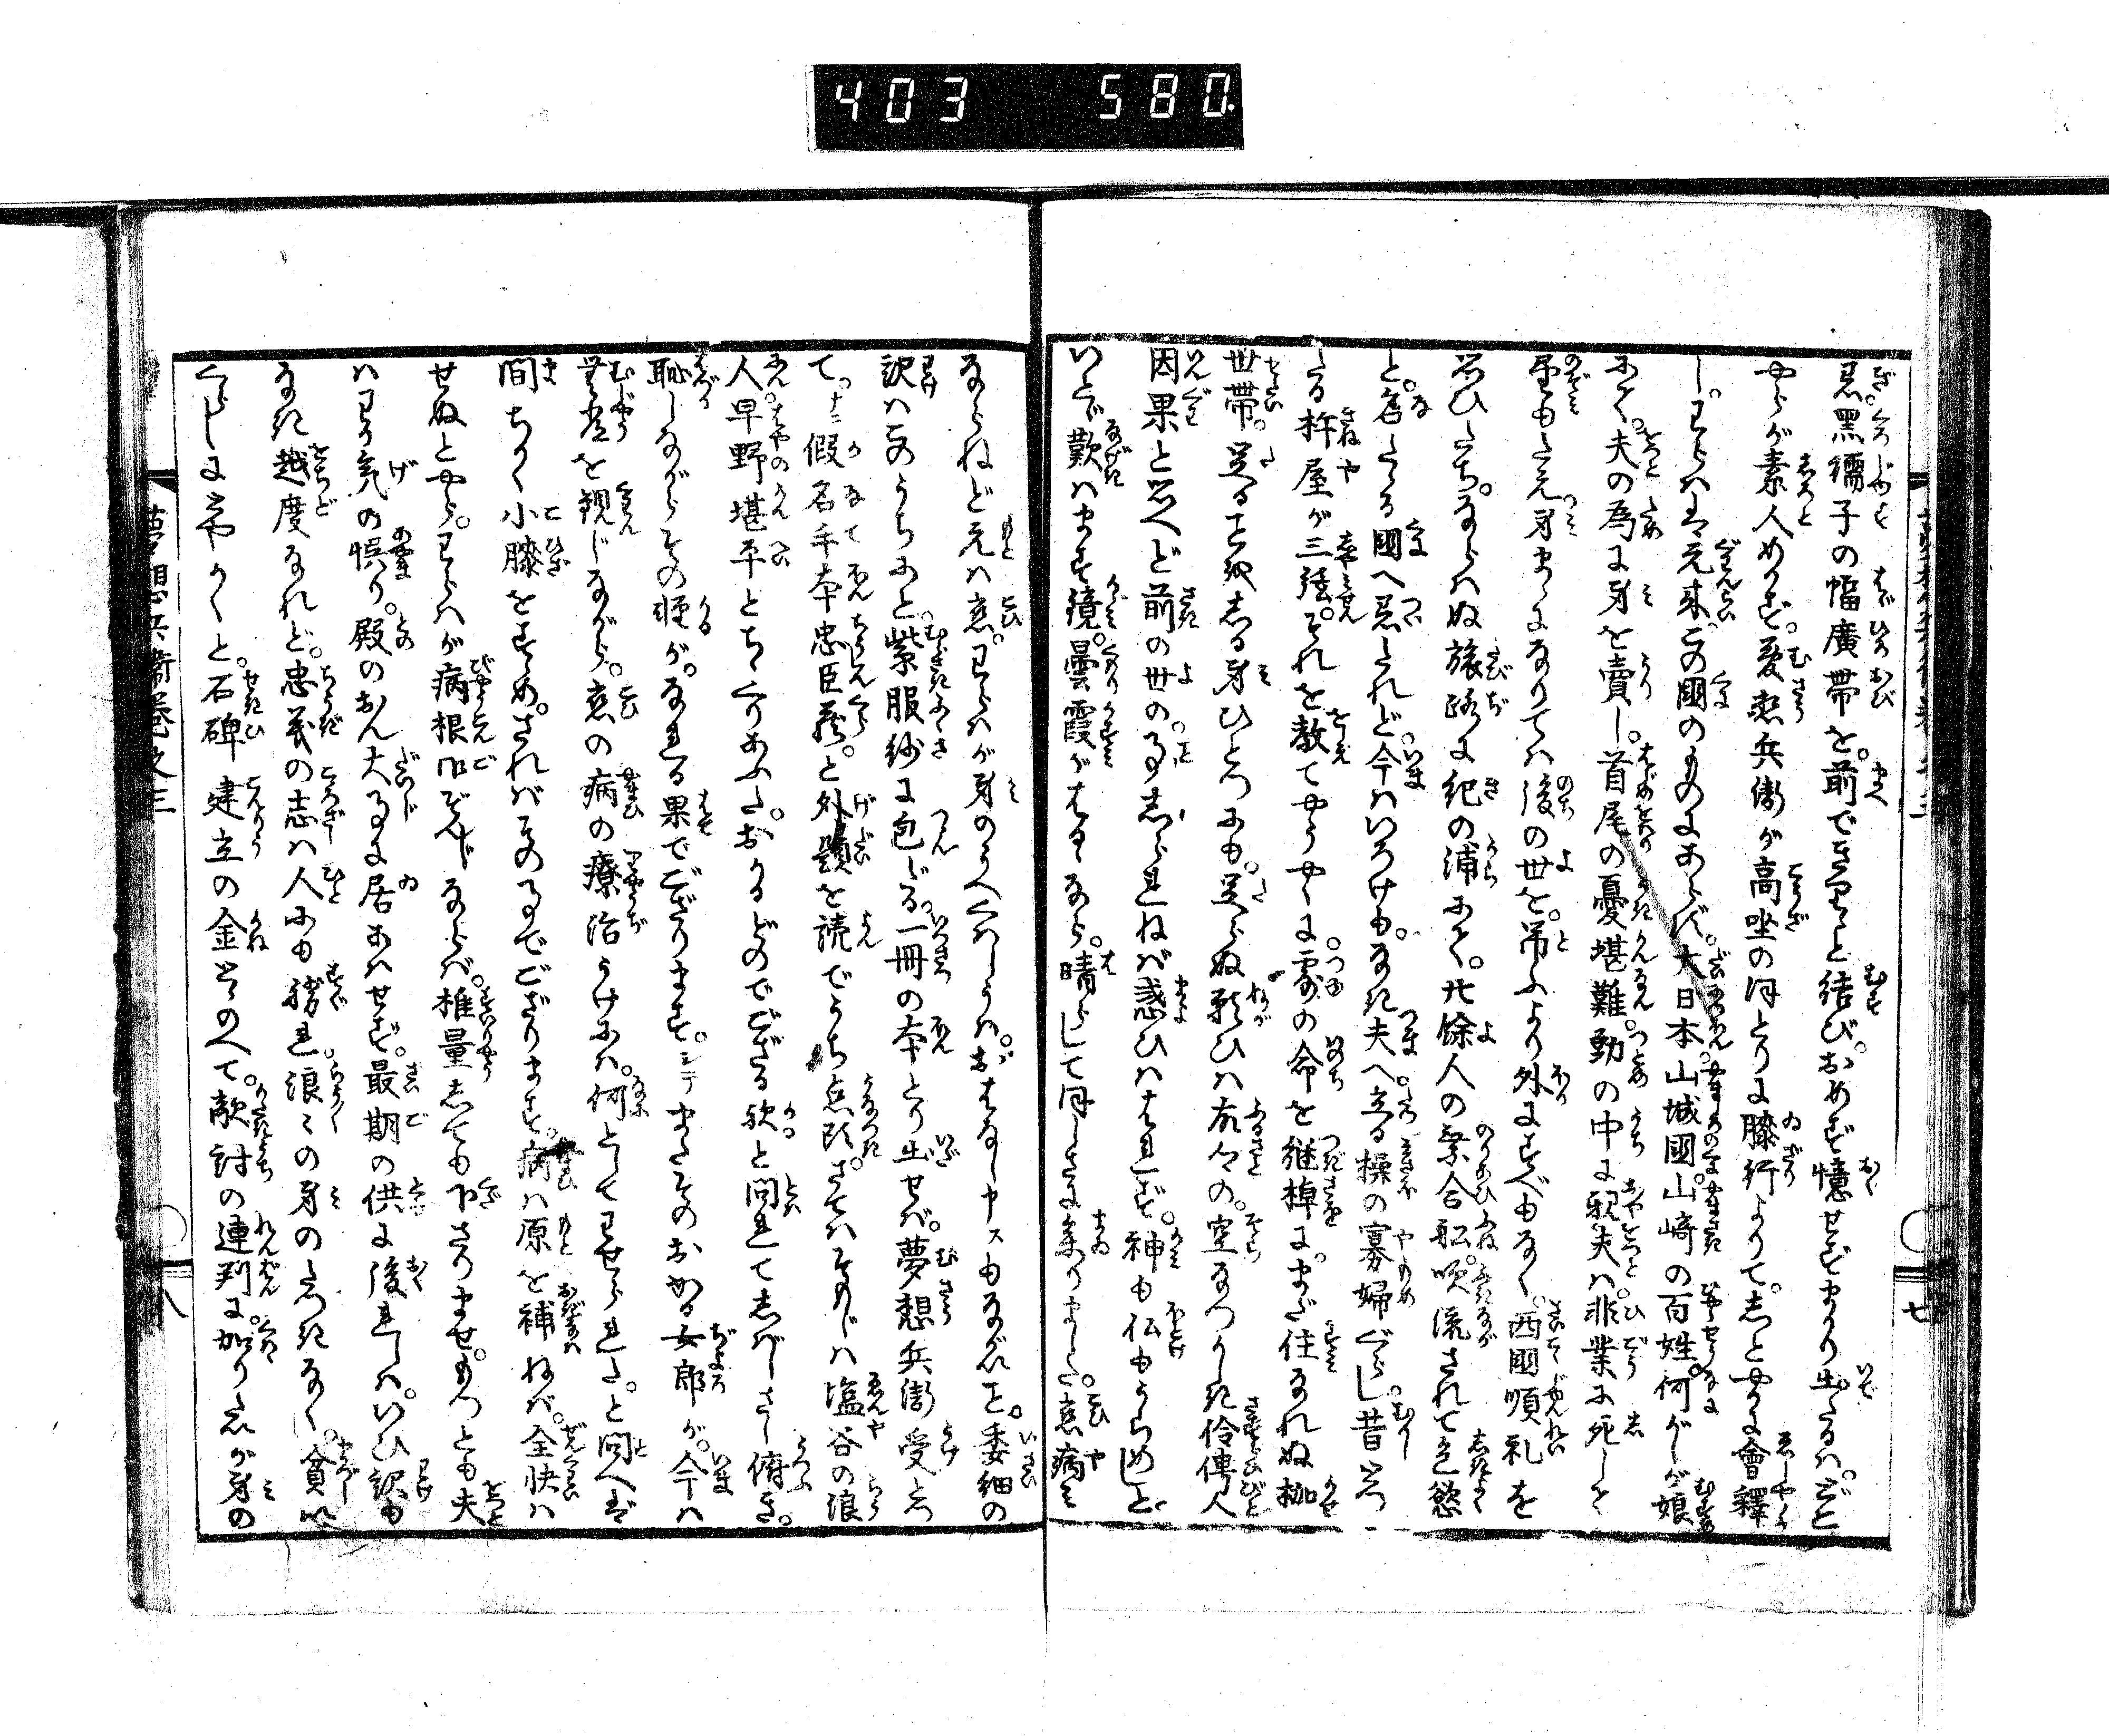 403 580
忌黒繻子の幅廣帯を。前できりゝと結び。おめず憶せずまかり出たるハ。どこ
やらが素人めかず。夢想兵衛が高坐のほとりに膝行よりて。しとやかに會釋
し。わらハゝ元来この國のものにあらず。大日本山城國。山崎の百姓。何がしが娘
にて。夫の為に身を賣し。首尾の憂堪難勤の中に親夫ハ。非業に死して
望もたえ身まゝになりてハ後の世を。吊ふより外にすべもなく。西國順礼を
思ひたち。ならハぬ旅路に紀の浦にて。其餘人の乗合舩。吹流されて色慾
と。名たる國へ忌たれど。今ハいろけも。なき夫へ立る操の寡婦ぐらし。昔覚
たる杵屋が三絃。それを教てやうやくに露の命を継棹に。まだ住なれぬ枷
世帯。足ることをしる身ひとつにも。足らぬ歎ひハ存命の。空なつかしき伶俜人
因果と思へど前の世の。事しられねば惑ひハはれず。神も仏もうらめしと
いとゞ歎ハます鏡。曇霞がはるゝなら。晴らして ほしさに参りました。恋病に
ならねど元ハ恋。わらハが身のうへくハしうハ。おはなし申スもながいこと。委細の
訳ハこのうちにと。紫服紗に包だる。一冊の本とり出せば。夢想兵衛受とつ
て。ナニ假名手本忠臣蔵。と外題を読でうち点頭。さてハそもじハ塩谷の浪
人早野堪平とちゝくりあふた。おかるどのでござる歟と問れてしばしさし俯き。
恥しながらその軽が。なれる果でござります。シテまたそのおかる女郎が。今ハ
無常を観じながら。恋の病の療治うけにハ。何としてわせられた。と問へば
間ちかく小膝をすゝめ。さればその事でござります。病ハ原を補ねば。全快ハ
せぬとやら。わらハが病根御ぞんじならば。推量しても下さりませ。もつとも夫
ハわか気の悮り。殿のおん大事に居あハせず。最期の供に後れしハ。いひ訳も
なき越度なれど。忠義の志ハ人にも勝れ浪々の身のたつきなく。貧しい
くらしにもやかくと。石碑建立の金とゝのへて。敵討の連判に。加りたいが身の
夢想兵衛巻之三
七
八